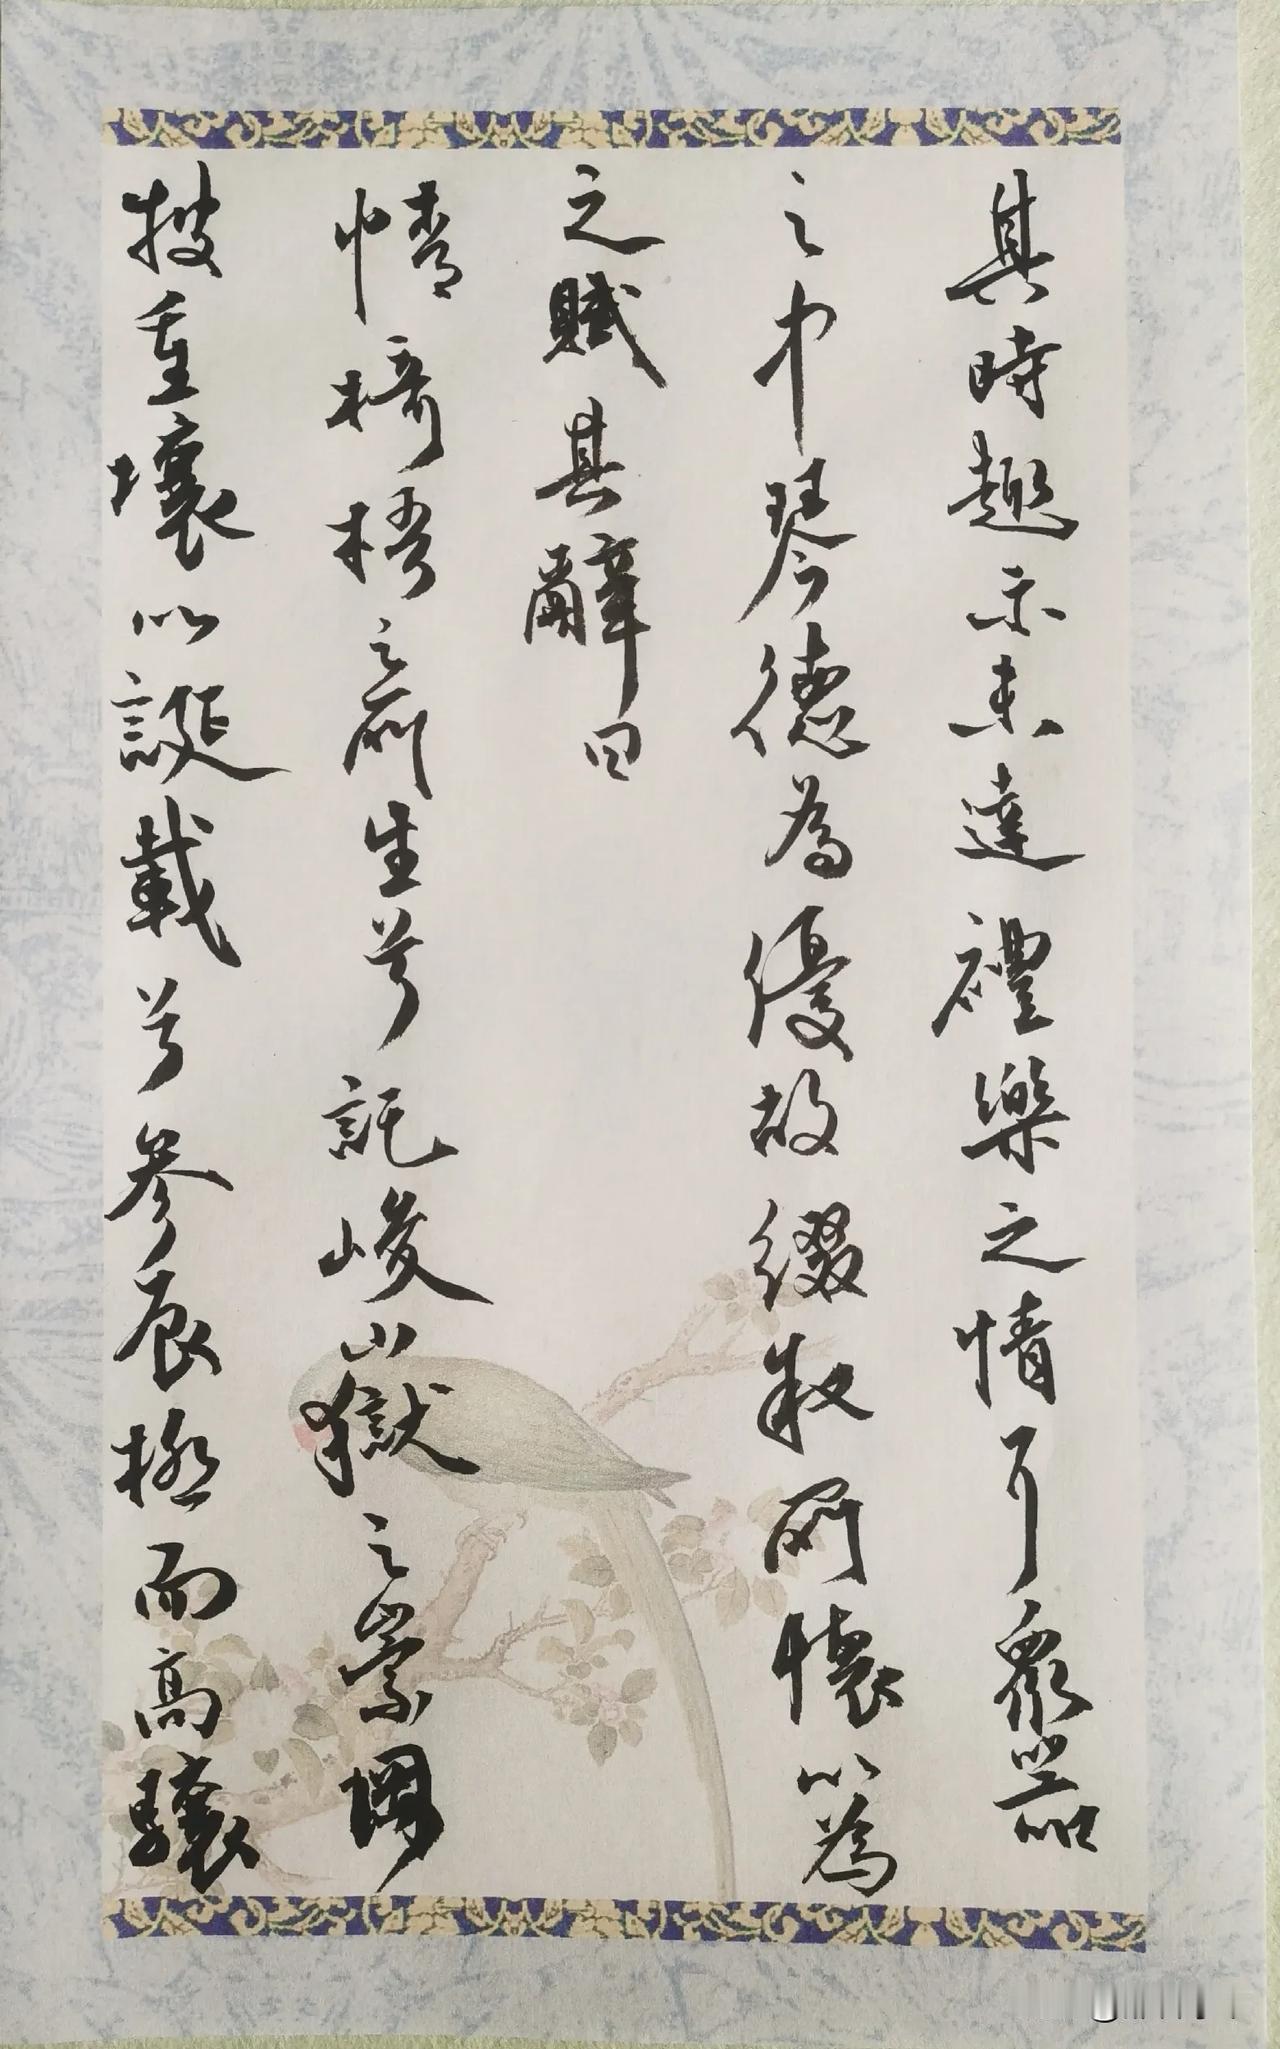 其時趣亦未達禮樂之情也衆器
之中琴德為優故綴叙所懷以為
之賦其辭曰
惟椅梧之所生兮託峻嶽之崇岡
披重壤以誕載兮參辰極而高驤